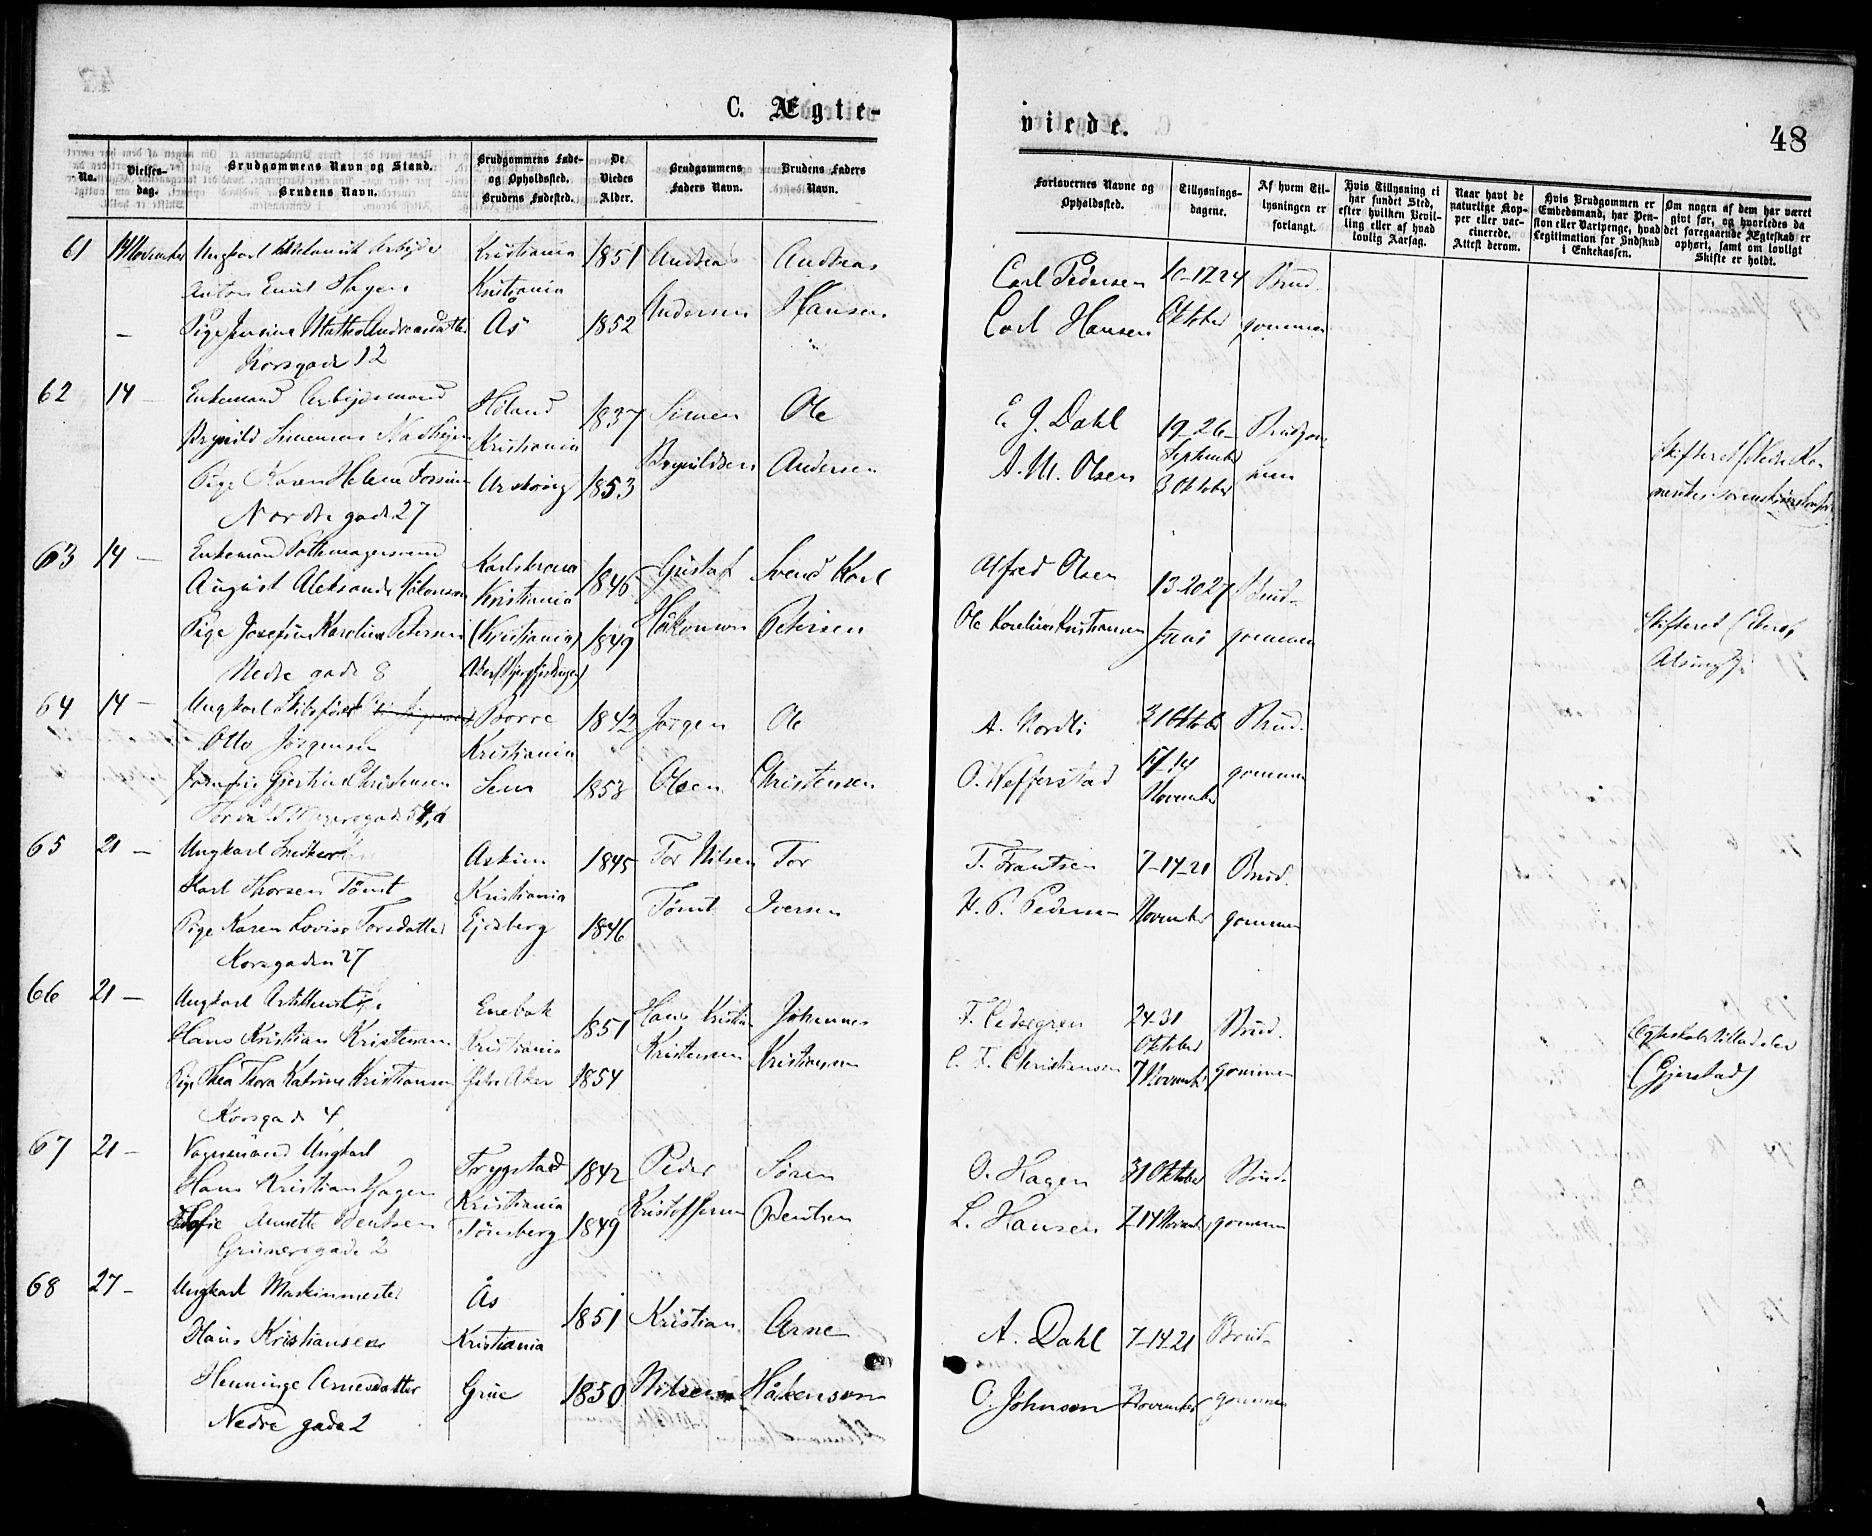 C. Ægte-
viede.
48
No.
Vielses-
dag.
Brudgommens Navn og Stand.
Brudens Navn.
Brudgommens Føde-
og Opholdssted.
Brudens Fødested.
De
Viedes
Alder.
Brudgommens
Faders Navn.
Brudens Faders
Navn.
Forlovernes Navne og
Opholdssted.
Tillysnings-
dagene.
Af hvem Til-
lysningen er
forlangt.
Hvis Tillysning ei
har fundet Sted,
efter hvilken Bevil-
ling eller af hvad
lovlig Aarsag.
Naar havt de
naturlige Kop-
per eller vac-
cinerede.
Attest derom.
Hvis Brudgommen er
Embedsmand, har Pen-
sion eller Vartpenge, hvad
Legitimation for Indskud
i Enkekassen.
Om nogen af dem har været
gift før, og hvorledes da
det foregaaende Ægteskab er
ophørt, samt om lovligt
Skifte er holdt.
61 November Ungkarl Kristiania 1851 Andreas Andreas Carl Pedersen 10-17-24 Brud-
Anton Emil Hagen Kristiania Andersen Hansen
Pige Jensine Mathea Andreasdatter Ås 1852 Carl Hansen Oktober gommen
Korsgade 12
62 14 — Enkemand Arbeidsmand Høland 1837 Simen Ole E. J. Dahl 19-26- Brudgom-
Brynild Simensen Kristiania Brynildsen Andersen A. M. Olsen September men
Pige Karen Helene Urskoug 1853 3 Oktober
Nordre gade 27
63 14 — Enkemand Karlskrona 1846 Gustaf Svend Karl Alfred Olsen 13-20-27 Brud-
August Aleksander Håkonson Kristiania Håkonson Petersen
Pige Josefine Karoline Petersen (Kristiania) 1849 Ole Kristiansen gommen Skifteret
Nedre gade 8
64 14 — Ungkarl Borre 1842 Jørgen Ole A. Nordli 31 Oktober Brud-
Otto Jørgensen Kristiania
Gjertine Christensen Sem 1853 Olsen Christensen O. 7-14 gommen
Torvald Meyersgade 54, November
65 21 — Ungkarl Snedker Askim 1845 Tor Nilsen Tor T. Frantsen 7-14-21 Brud-
Karl Thorsen Tømt Kristiania Tømt Iversen H. P. Pedersen November gommen
Pige Karen Lovise Torsdatter Ejdsberg 1846
Korsgaden 27
66 21 — Ungkarl Enebak 1851 Hans Kristian Johannes F. Cedergren 24-31 Brud-
Hans Kristian Kristensen Kristiania Kristensen Kristiansen Oktober
Pige Thea Thora Katrine Kristiansen Aker 1854 C. F. Christiansen 7 November gommen (Gjerstad)
Korsgade 4
67 21 — Vognmand Ungkarl Trygstad 1842 Peder Søren O. Hagen 31 Oktober Brud-
Hans Kristian Hagen Kristiania Kristoffersen Bentsen
Sofie Annette Bentsen Tønsberg 1849 L. Hansen 7-14 November gommen
Grünersgade 2
68 27 — Ungkarl Maskinmester Ås 1851 Kristian Arne A. Dahl 7-14-21 Brud-
Hans Kristiansen Kristiania
Henninge Arnesdatter Grue 1850 Nilsen Håkenson O. Johnson November gommen
Nedre gade 2